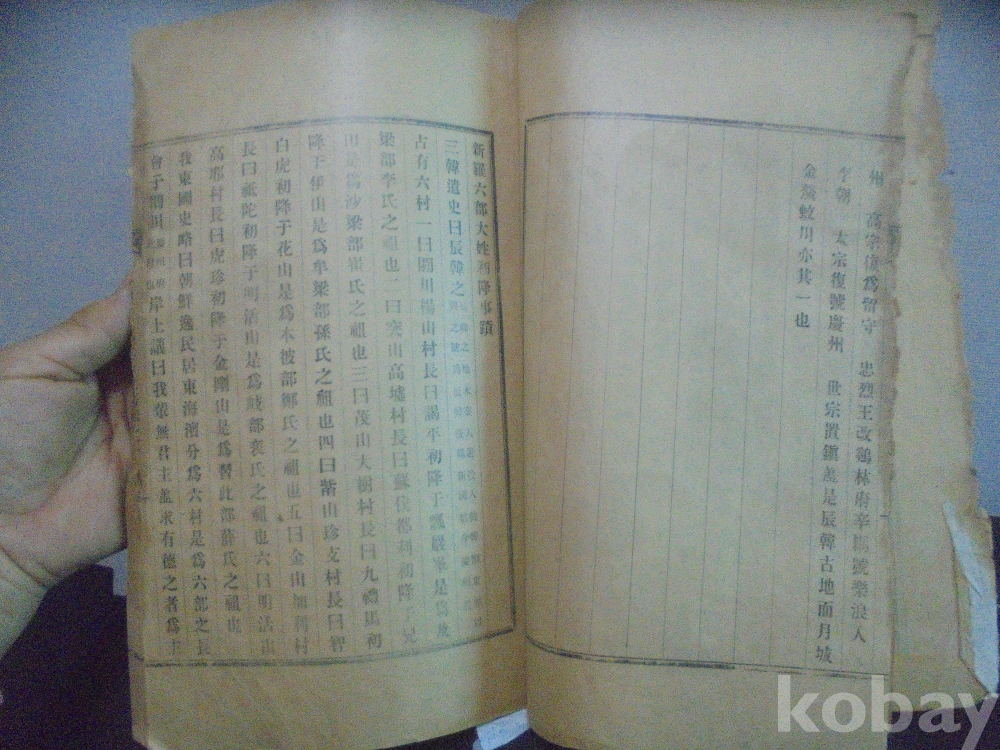 州 高宗復爲留守 忠烈王改鷄林府辛禑號樂浪人
李朝 太宗復號慶州 世宗置鎭盖是辰韓古地面月城
金鰲蚊川亦其一也
新羅六部大姓初降事蹟
三韓遺史曰辰韓之
占有六村一曰閼川楊山村長曰謁平初降于瓢巖峯是爲及
梁部李氏之祖也二曰突山高墟村長曰蘇伐都利初降于兄
山是爲沙梁部崔氏之祖也三曰茂山大樹村長曰九禮馬初
降于伊山是爲牟梁部孫氏之祖也四曰觜山珍支村長曰智
白虎初降于花山是爲本彼部鄭氏之祖也五曰金山加利村
長曰祗陀初降于明活山是爲漢部裵氏之祖也六曰明活山
高耶村長曰虎珍初降于金剛山是爲習比部薛氏之祖也
我東國史略曰朝鮮遺民居東海濱分爲六村是爲六部之長
會于閼川岸上議曰我輩無君主盖求有德之者爲主
kobay